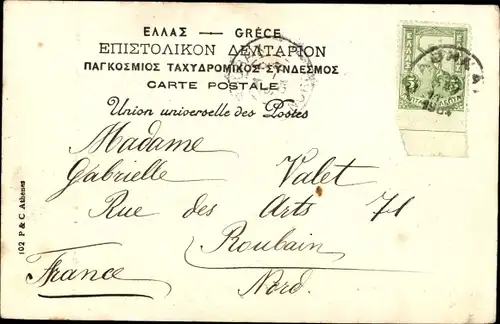 ΕΛΛΑΣ — GRÈCE
ΕΠΙΣΤΟΛΙΚΟΝ ΔΕΛΤΑΡΙΟΝ
ΠΑΓΚΟΣΜΙΟΣ ΤΑΧΥΔΡΟΜΙΚΟΣ ΣΥΝΔΕΣΜΟΣ
CARTE POSTALE
Union universelle des Postes
Madame
Gabrielle Valet
Rue des Arts 71
Roubain
France
Nord.
102 P & C Athenes
ΕΛΛΑΣ
5 5